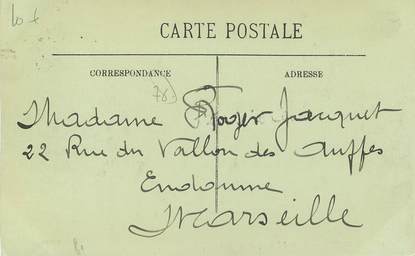 10 +
CARTE POSTALE
CORRESPONDANCE ADRESSE
78)
Madame Roger Jacquet
22 Rue du Vallon des Auffes
Endoume
Marseille